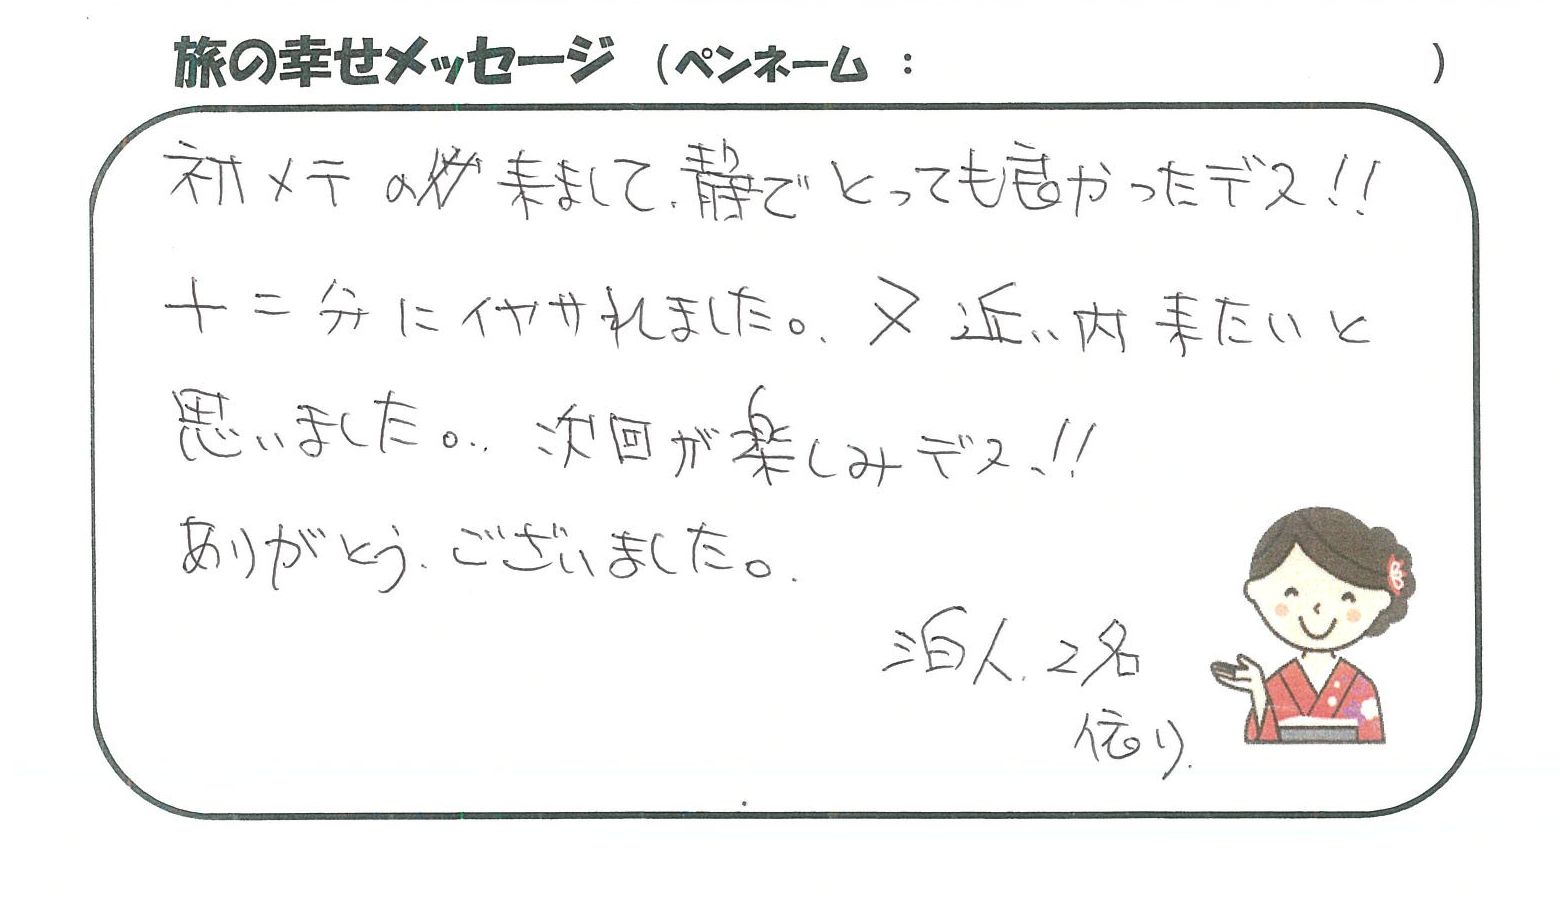 旅の幸せメッセージ （ペンネーム ： ）
初メテの 来まして、静でとっても良かったデス!!
十二分にイヤサれました。又近い内来たいと
思いました。次回が楽しみデス、!!
ありがとう、ございました。
泊人、2名
依り、